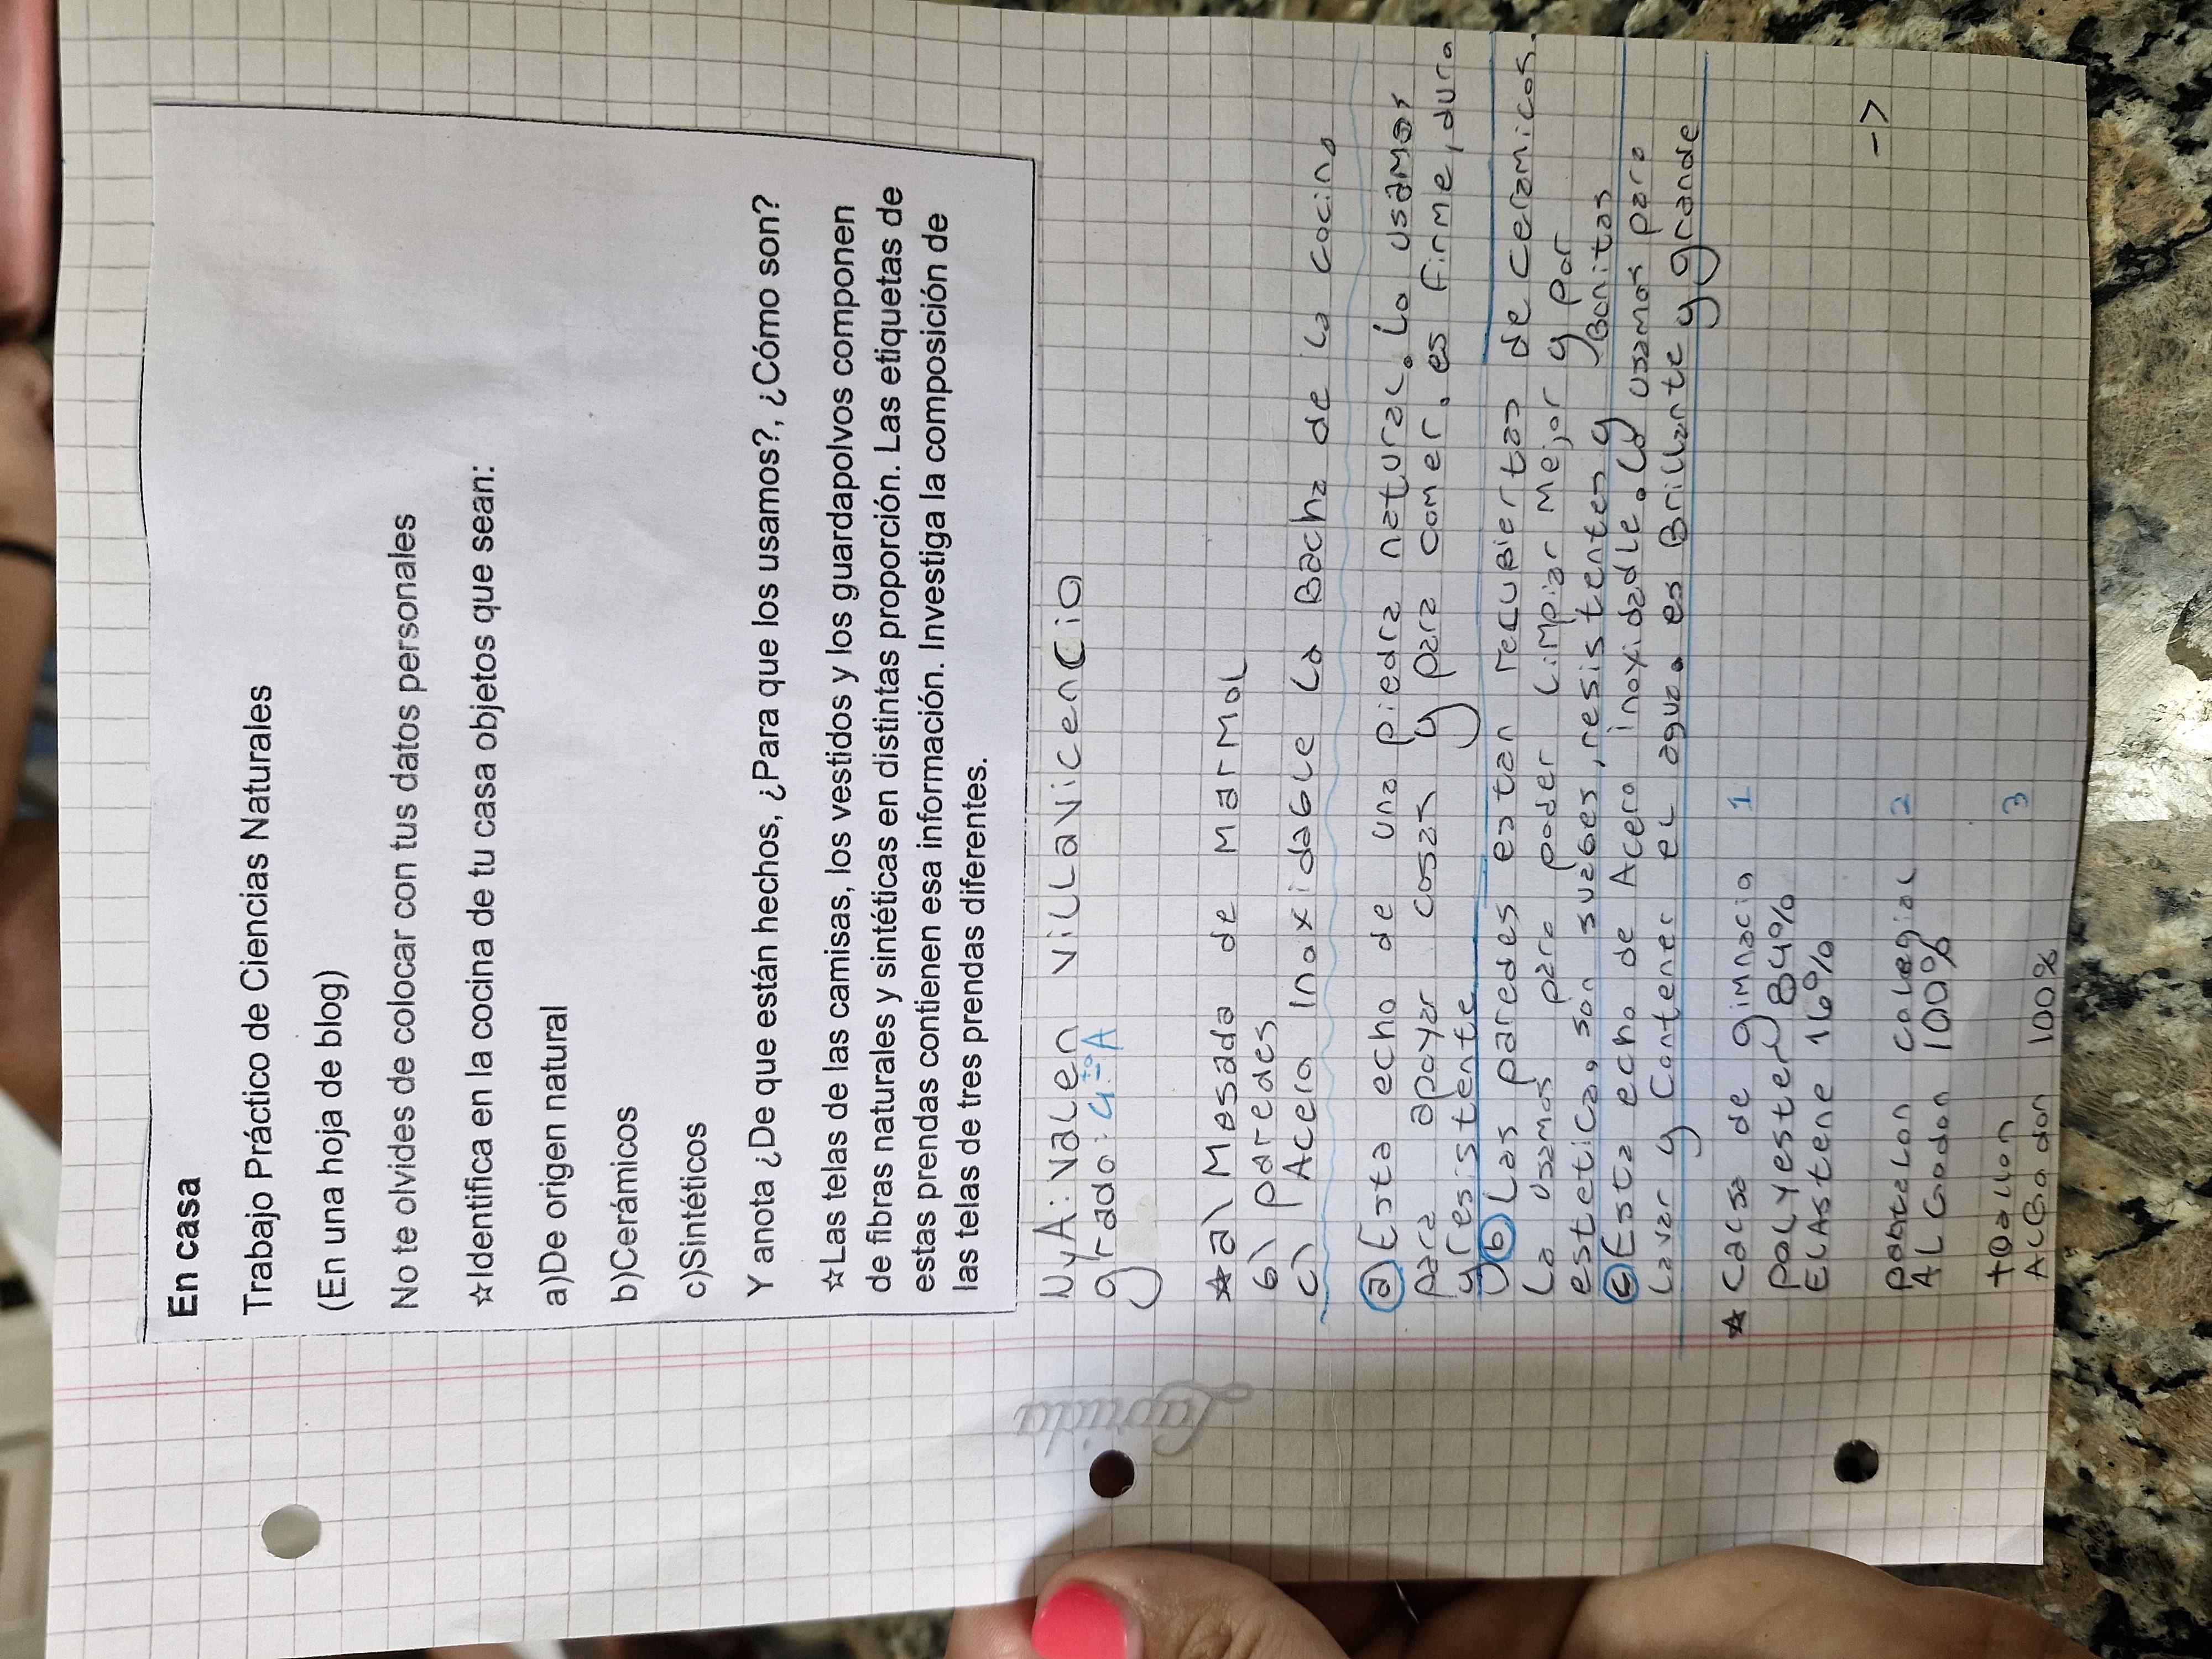 En casa
Trabajo Práctico de Ciencias Naturales
(En una hoja de blog)
No te olvides de colocar con tus datos personales
☆Identifica en la cocina de tu casa objetos que sean:
a)De origen natural
b)Cerámicos
c)Sintéticos
Y anota ¿De que están hechos, ¿Para que los usamos?, ¿Cómo son?
☆Las telas de las camisas, los vestidos y los guardapolvos componen
de fibras naturales y sintéticas en distintas proporción. Las etiquetas de
estas prendas contienen esa información. Investiga la composición de
las telas de tres prendas diferentes.
NyA: Valen Villavicencio
grado: 4to A
☆a) Mesada de Marmol
b) paredes
c) Acero inoxidable La Bacha de la cocina
a) Esta echo de una piedra natural. La usamos
para apoyar cosas y para comer. es firme, dura
y resistente
b) Las paredes estan recubiertas de ceramicos.
La usamos para poder limpiar mejor y por
estetica, son suabes, resistentes y Bonitas
c) Esta echo de Acero inoxidadle. La usamos para
Lavar y Contener el agua. es Brillante y grande
☆ Calsa de gimnacia 1
Polyester 84%
Elastene 16%
pantalon colegial 2
ALGodon 100%
toallon 3
ALGodon 100%
->
Laprida